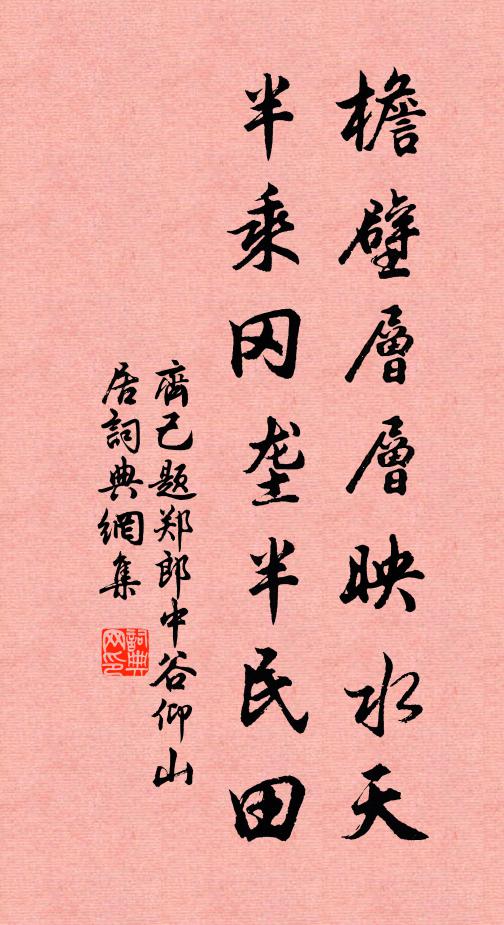 檐壁層層映水天
半乘冈垄半民田
齊己题郑郎中谷仰山
居詞典網集
詞典网印